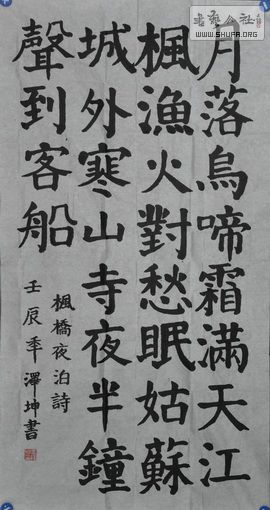 月落烏啼霜滿天江
楓漁火對愁眠姑蘇
城外寒山寺夜半鐘
聲到客船
楓橋夜泊詩
壬辰秊澤坤書
書藝公社
WWW.SHUFA.ORG